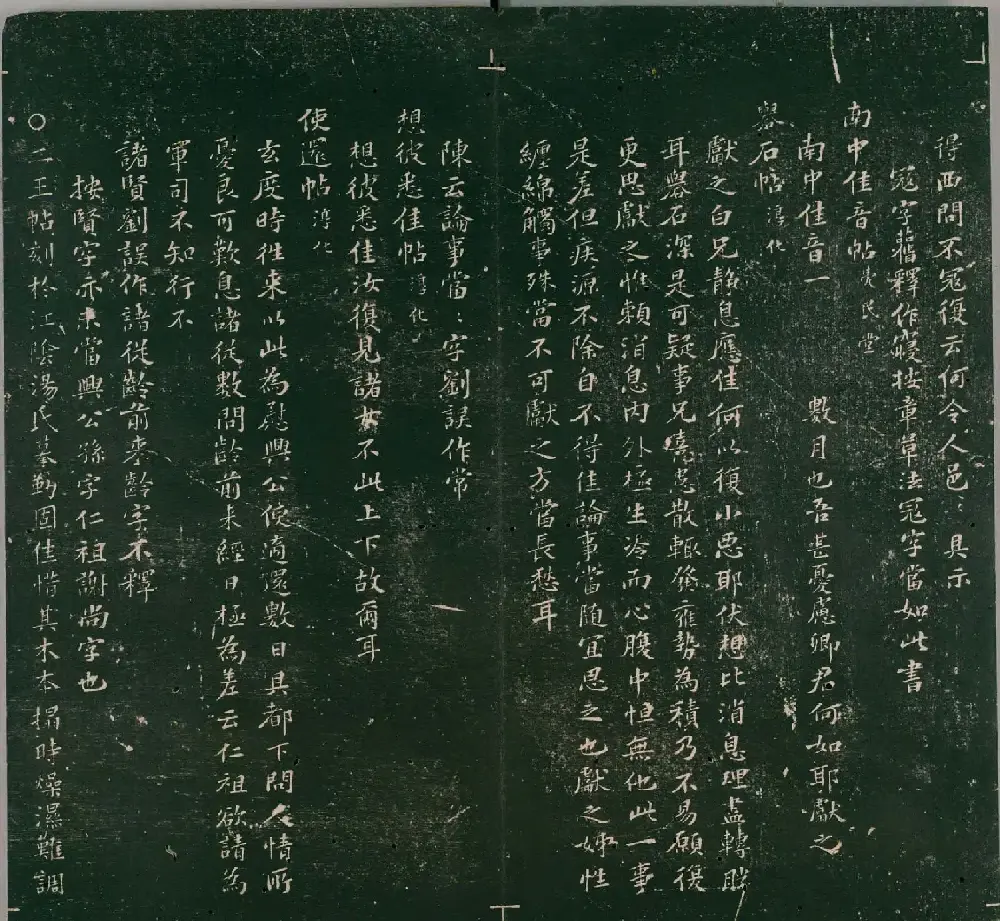 得西問不冦復云何令人邑〻具示
冦字舊釋作寢按章草法冦字當如此書
南中佳音帖 澂民堂
南中佳音一 數月也吾甚憂慮卿君何如耶獻之
礜石帖 淳化
獻之白兄靜息應佳何以復小惡耶伏想比消息理盡轉勝
耳礜石深是可疑事兄憙患散輒發癰勢為積乃不易願復
更思獻之惟賴消息內外極生冷而心腹中恒無他此一事
是差但疾源不除自不得佳論事當随宜思之也獻之姊性
纏綿觸事殊當不可獻之方當長愁耳
陳云論事當〻字劉誤作常
想彼悉佳帖 淳化
想彼悉佳汝復見諸女不此上下故爾耳
使還帖 淳化
玄度時往來以此為慰興公使適還數日具都下問人情所
憂良可歎息諸從數問齡前未經日極為差云仁祖欲請為
軍司不知行不
諸賢劉誤作諸從齡前來齡字不釋
按賢字亦未當興公孫字仁祖謝尚字也
○二王帖刻於江陰湯氏摹勒固佳惜其木本搨時燥濕難調